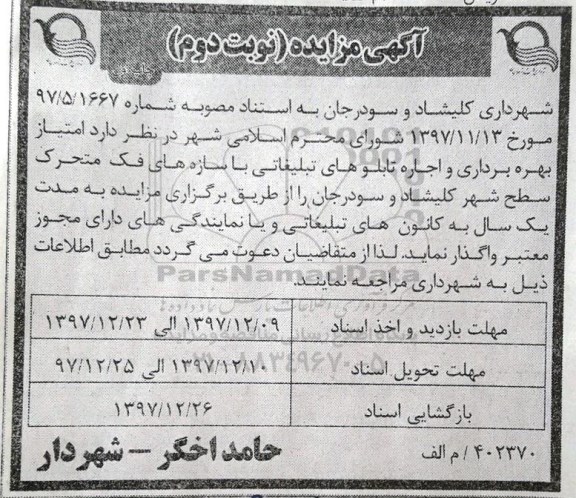 آگهی مزایده (نوبت دوم)
شهرداری کلیشاد و سودرجان به استناد مصوبه شماره ۹۷/۵/۱۶۶۷
مورخ ۱۳۹۷/۱۱/۱۳ شورای محترم اسلامی شهر در نظر دارد امتیاز
بهره برداری و اجاره تابلو های تبلیغاتی با سازه های فک متحرک
سطح شهر کلیشاد و سودرجان را از طریق برگزاری مزایده به مدت
یک سال به کانون های تبلیغاتی و یا نمایندگی های دارای مجوز
معتبر واگذار نماید. لذا از متقاضیان دعوت می گردد مطابق اطلاعات
ذیل به شهرداری مراجعه نمایند.
ParsNamadData
مهلت بازدید و اخذ اسناد ۱۳۹۷/۱۲/۰۹ الی ۱۳۹۷/۱۲/۲۳
مهلت تحویل اسناد ۱۳۹۷/۱۲/۱۰ الی ۹۷/۱۲/۲۵
۰۲۱-۸۸۳۴۹۶۷۰-۵
بازگشایی اسناد ۱۳۹۷/۱۲/۲۶
۴۰۲۳۷۰ / م الف حامد اخگر – شهردار